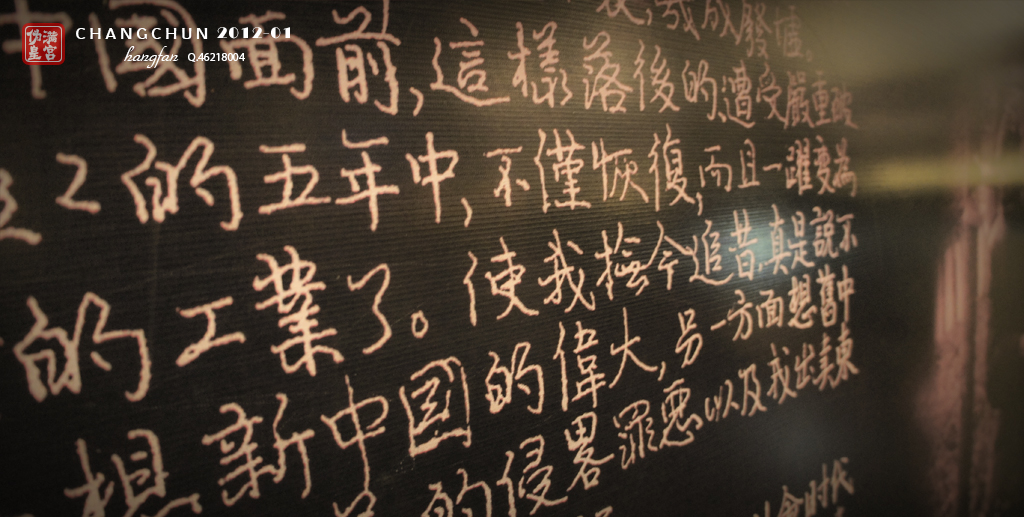 CHANGCHUN 2012-01
hangfan Q.46218004
伪满皇宫
成廢墟,
中國面前,這樣落後的、遭受嚴重破
工的五年中,不僅恢復,而且一躍變爲
的工業了。使我撫今追昔,真是說不
想新中國的偉大,另一方面想舊中
的侵畧罪惡以及我出賣東
社會時代